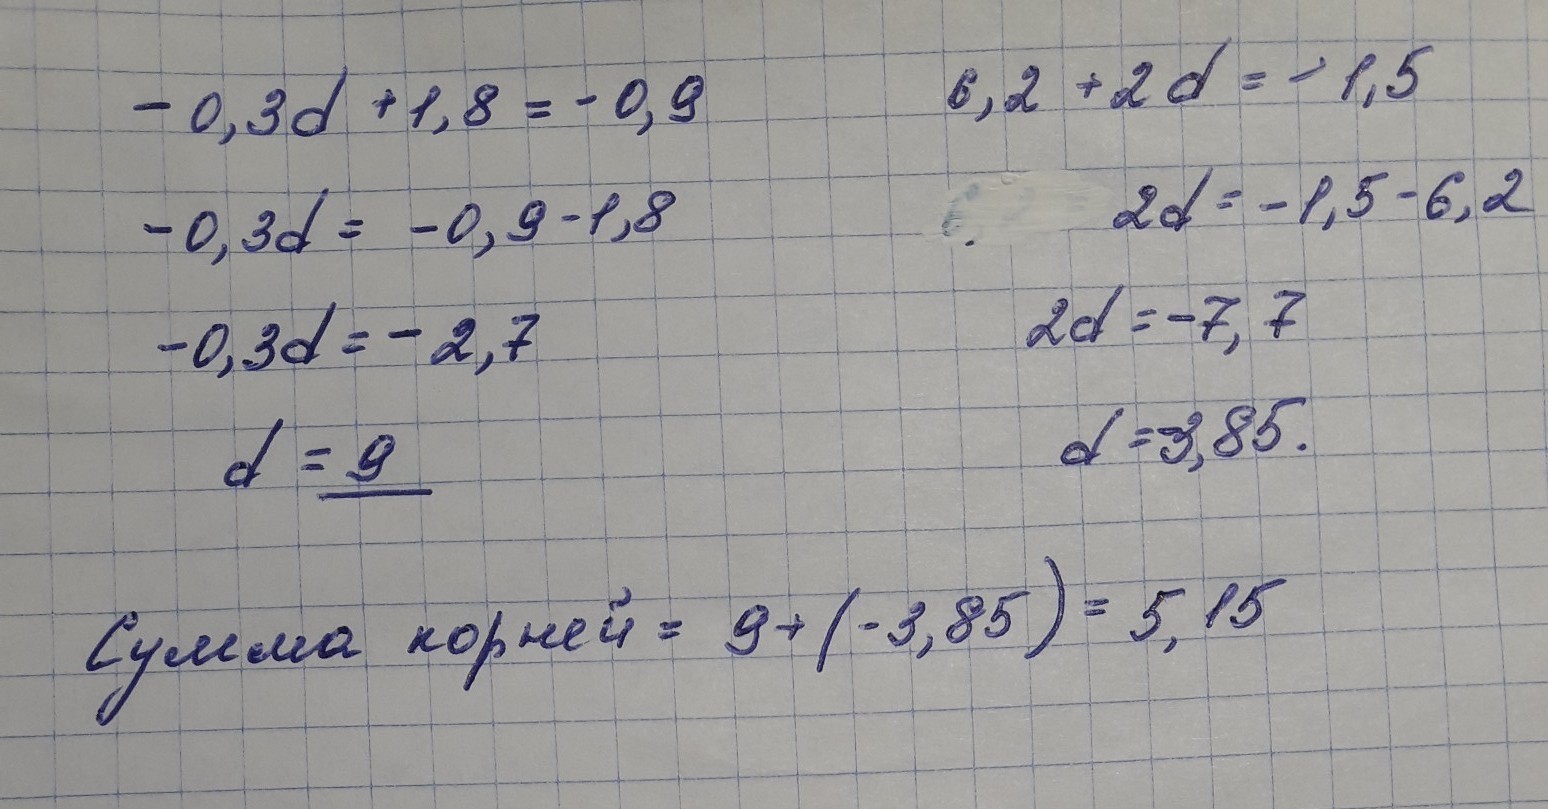 -0,3d +1,8 = -0,9
-0,3d = -0,9 -1,8
-0,3d = -2,7
d = 9
6,2 +2d = -1,5
2d = -1,5 -6,2
2d = -7,7
d =-3,85.
Сумма корней = 9+(-3,85)= 5,15